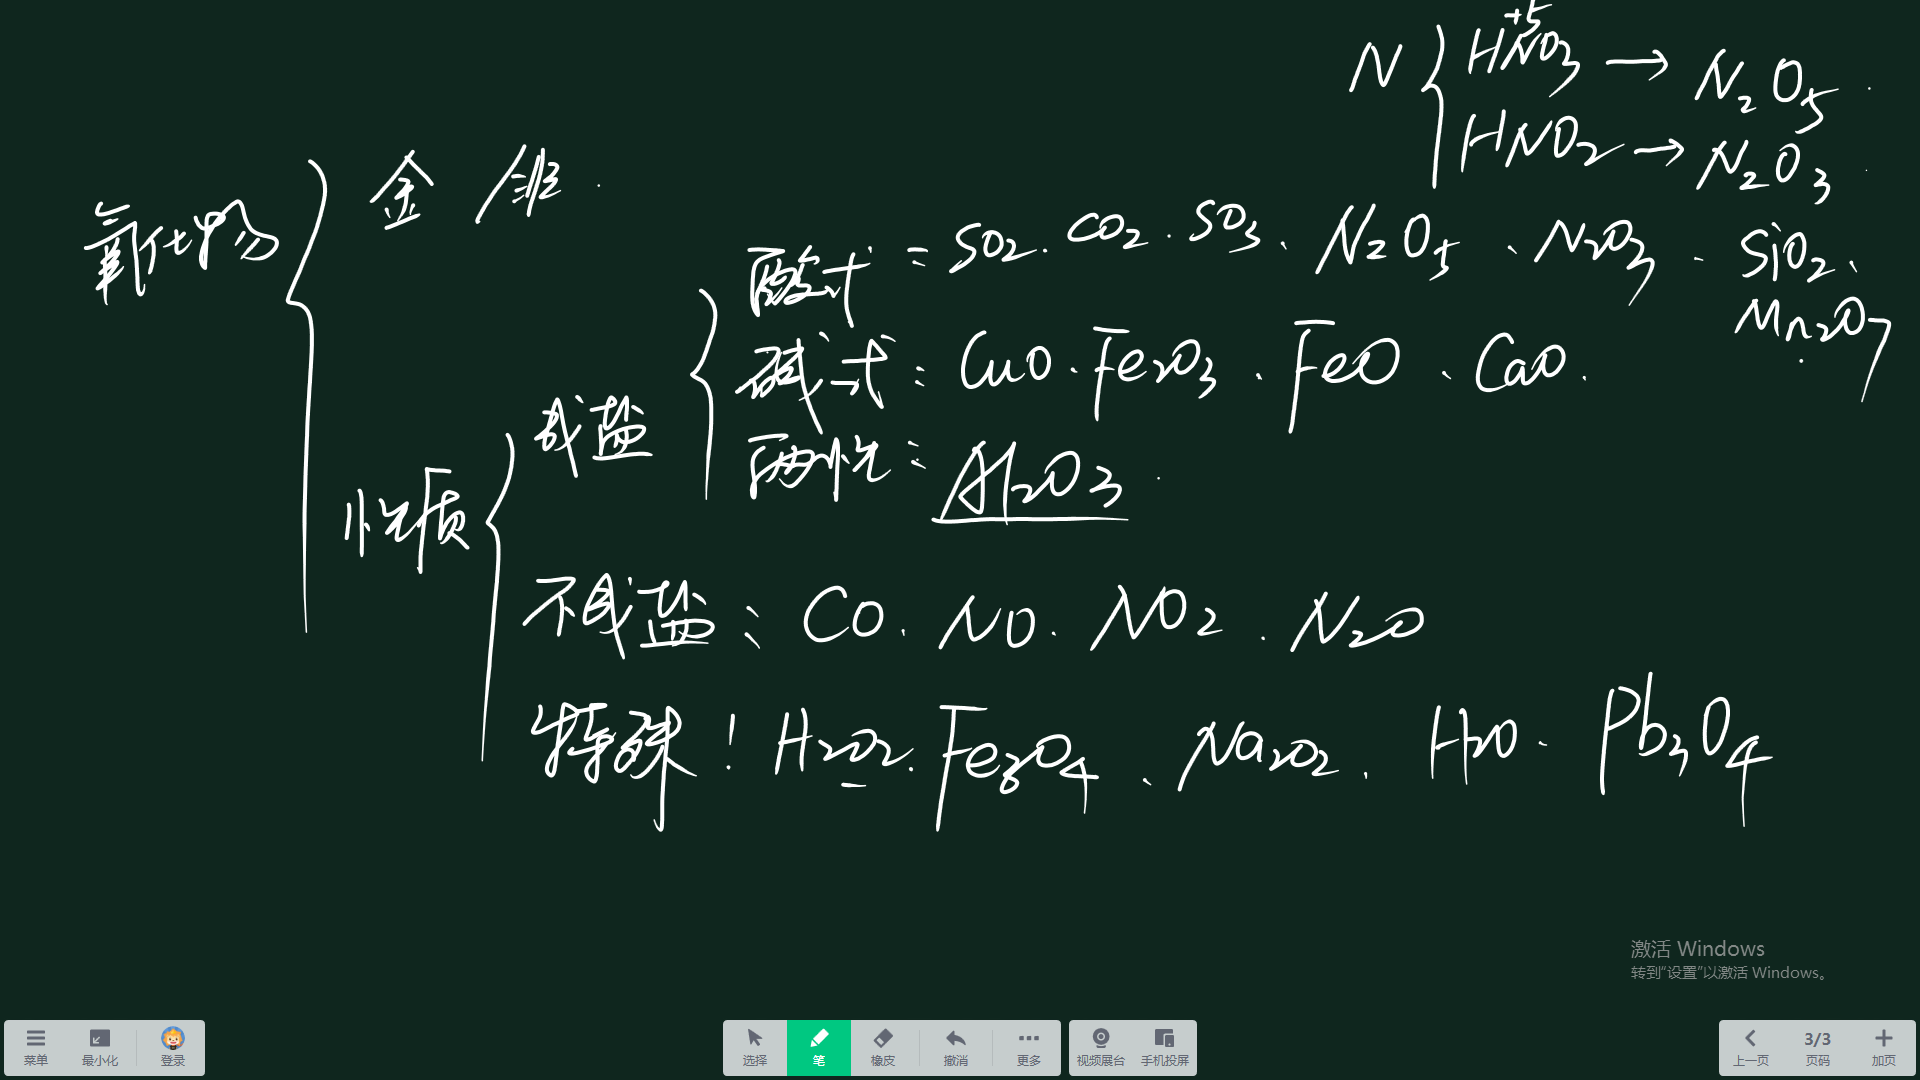 N { HNO₃ (+5) → N₂O₅
HNO₂ → N₂O₃
氧化物 { 金 / 非
性质 { 成盐 { 酸式:SO₂.CO₂.SO₃、N₂O₅、N₂O₃.SiO₂、
Mn₂O₇
碱式:CuO.Fe₂O₃.FeO.CaO.
两性:Al₂O₃
不成盐:CO.NO.NO₂.N₂O
特殊!H₂O₂.Fe₃O₄、Na₂O₂.H₂O.Pb₃O₄
激活 Windows
转到“设置”以激活 Windows。
菜单 最小化 登录 选择 笔 橡皮 撤消 更多 视频展台 手机投屏 上一页 3/3 页码 加页